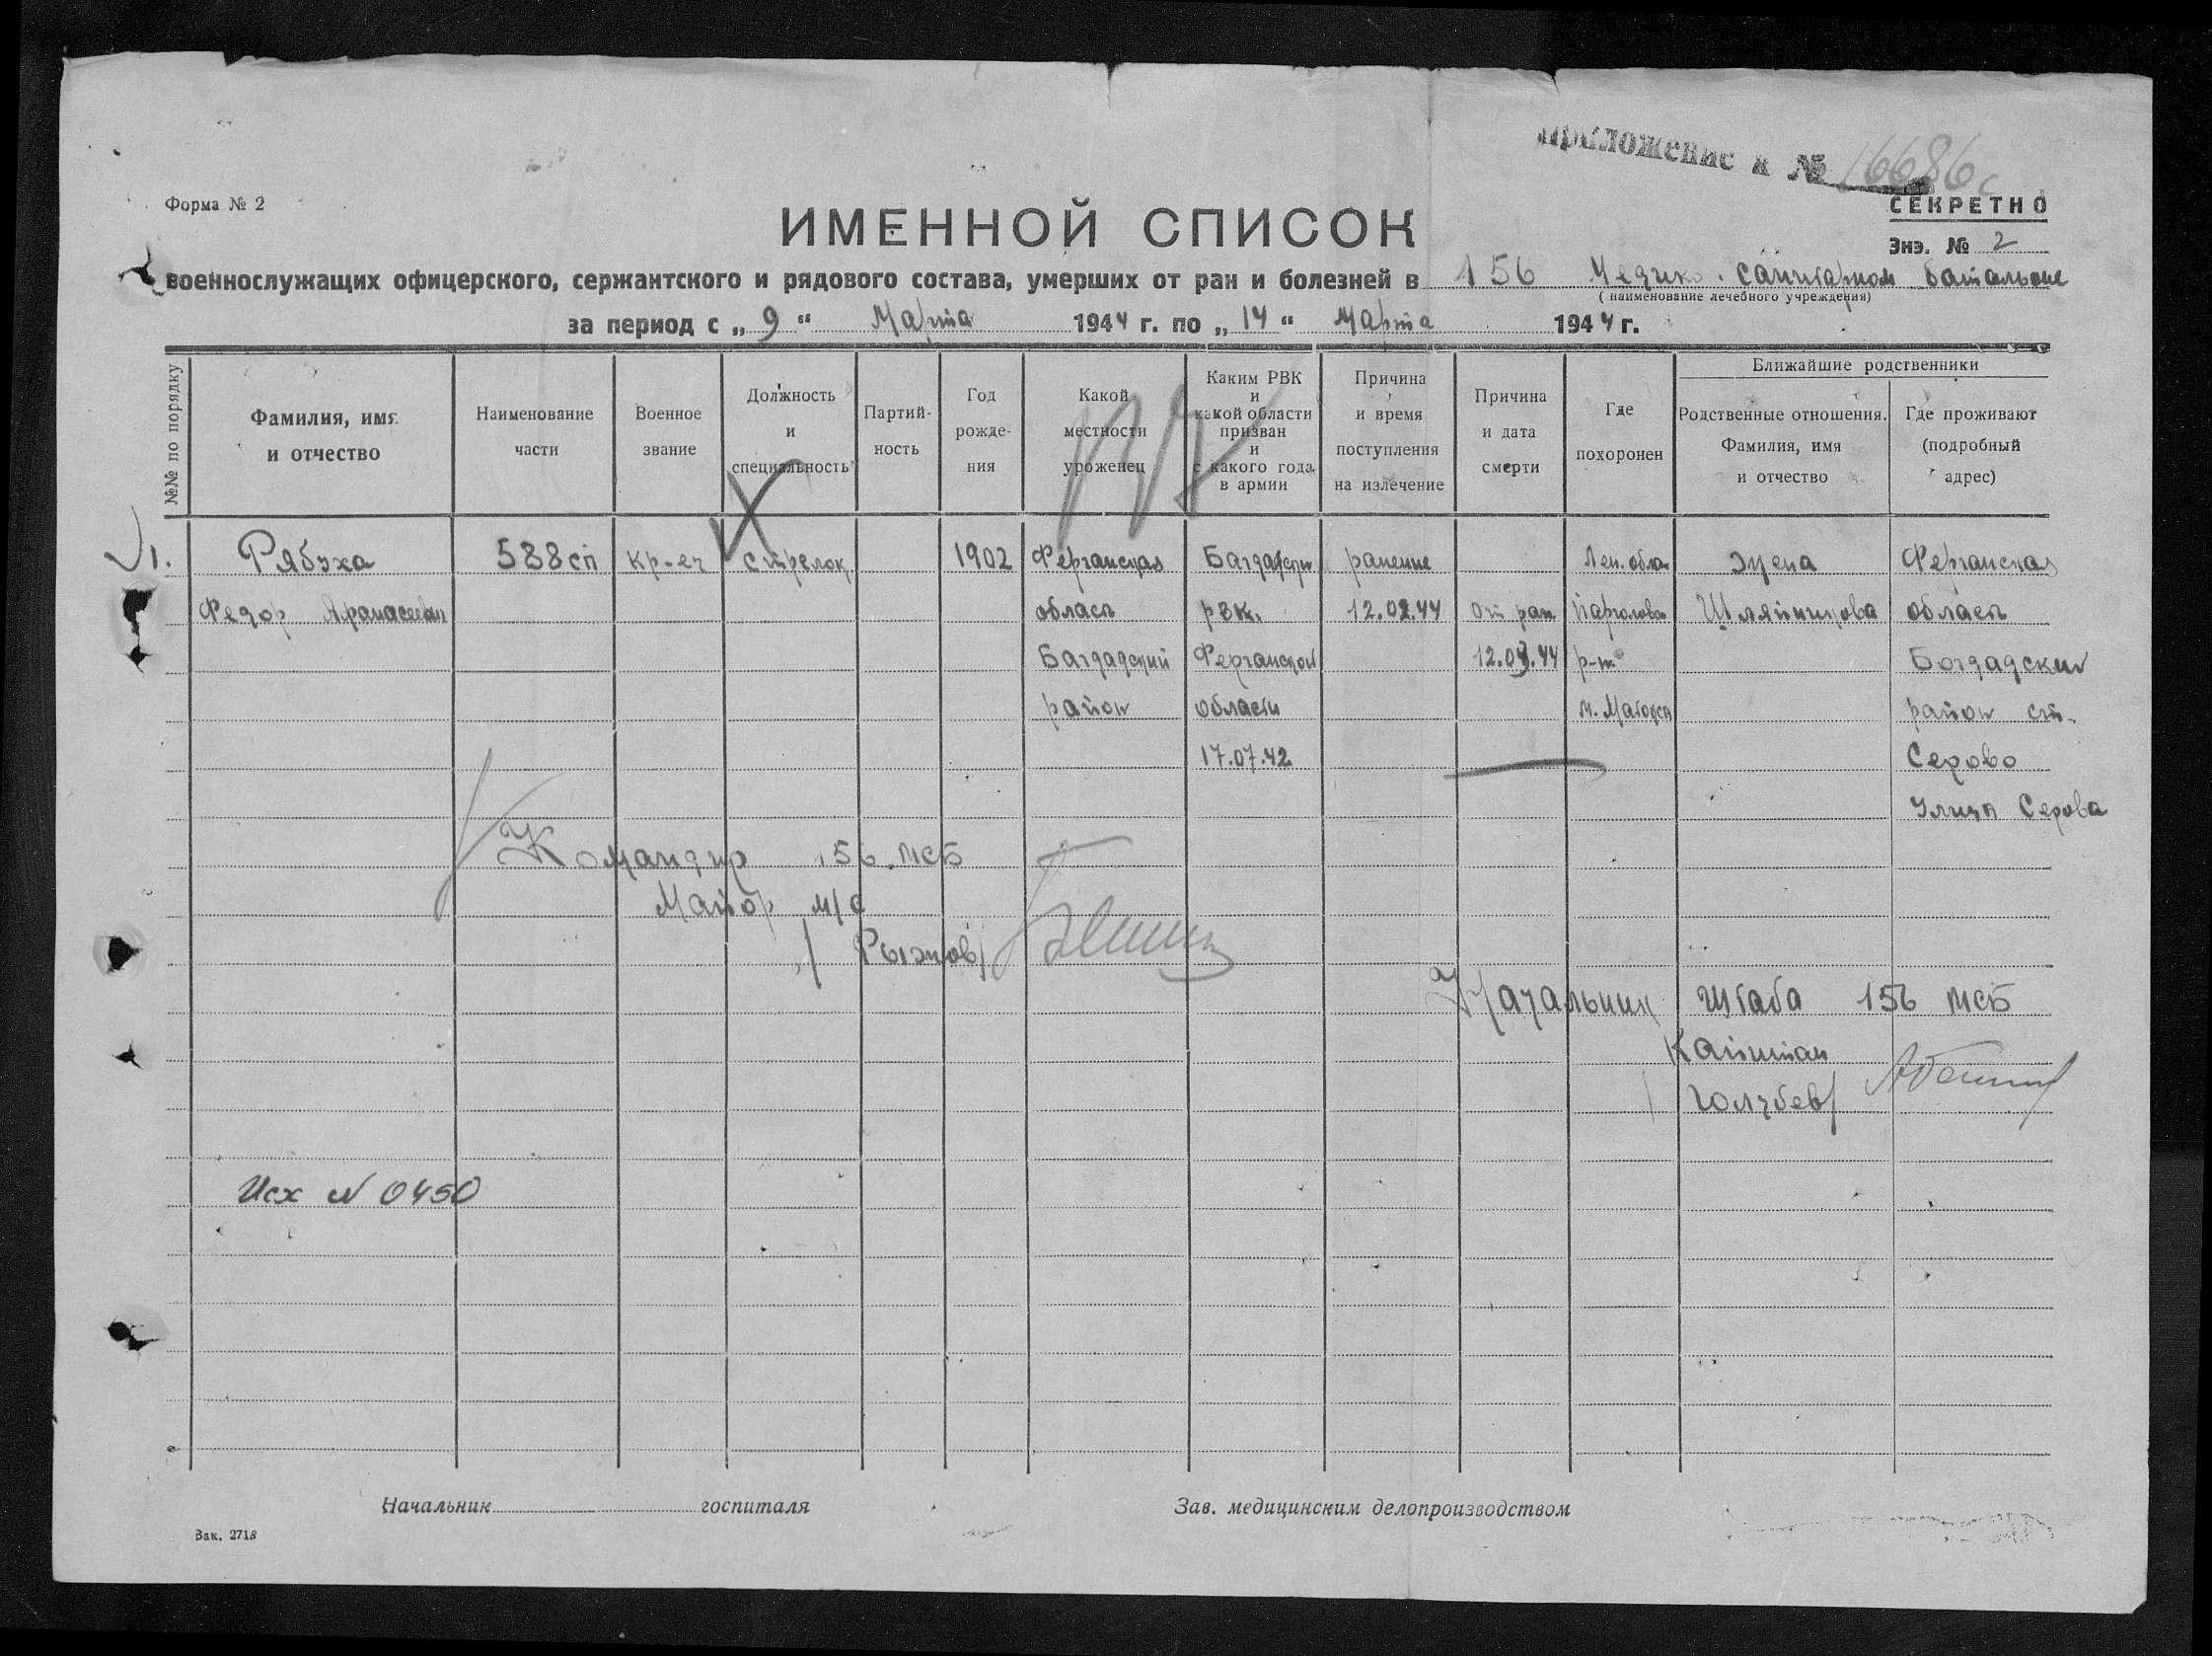 Приложение к № 16686с
Форма № 2
СЕКРЕТНО
ИМЕННОЙ СПИСОК
Энз. № 2
военнослужащих офицерского, сержантского и рядового состава, умерших от ран и болезней в 156 Медико-санитарном батальоне
(наименование лечебного учреждения)
за период с „ 9 “ Марта 1944 г. по „ 14 “ Марта 1944 г.
№№ по порядку
Фамилия, имя
и отчество
Наименование
части
Военное
звание
Должность
и
специальность
Партий-
ность
Год
рожде-
ния
Какой
местности
уроженец
Каким РВК
и
какой области
призван
и
с какого года
в армии
Причина
и время
поступления
на излечение
Причина
и дата
смерти
Где
похоронен
Ближайшие родственники
Родственные отношения.
Фамилия, имя
и отчество
Где проживают
(подробный
адрес)
1. Рябуха 588 сп кр-ец стрелок 1902 Ферганская Багдадск ранение Лен. обла Жена Ферганская
Федор Афанасиевич область рвк. 12.03.44 от ран Парголовс Шляпникова область
Багдадский Ферганской 12.03.44 р-н Богдадский
район области м. Матокса район ст.
17.07.42 Серово
Улица Серова
Командир 156 МСБ
Майор м/с
/Рызнов/
Начальник Штаба 156 МСБ
Капитан
/Голубев/
Исх N 0450
Начальник госпиталя
Зав. медицинским делопроизводством
Зак. 2718